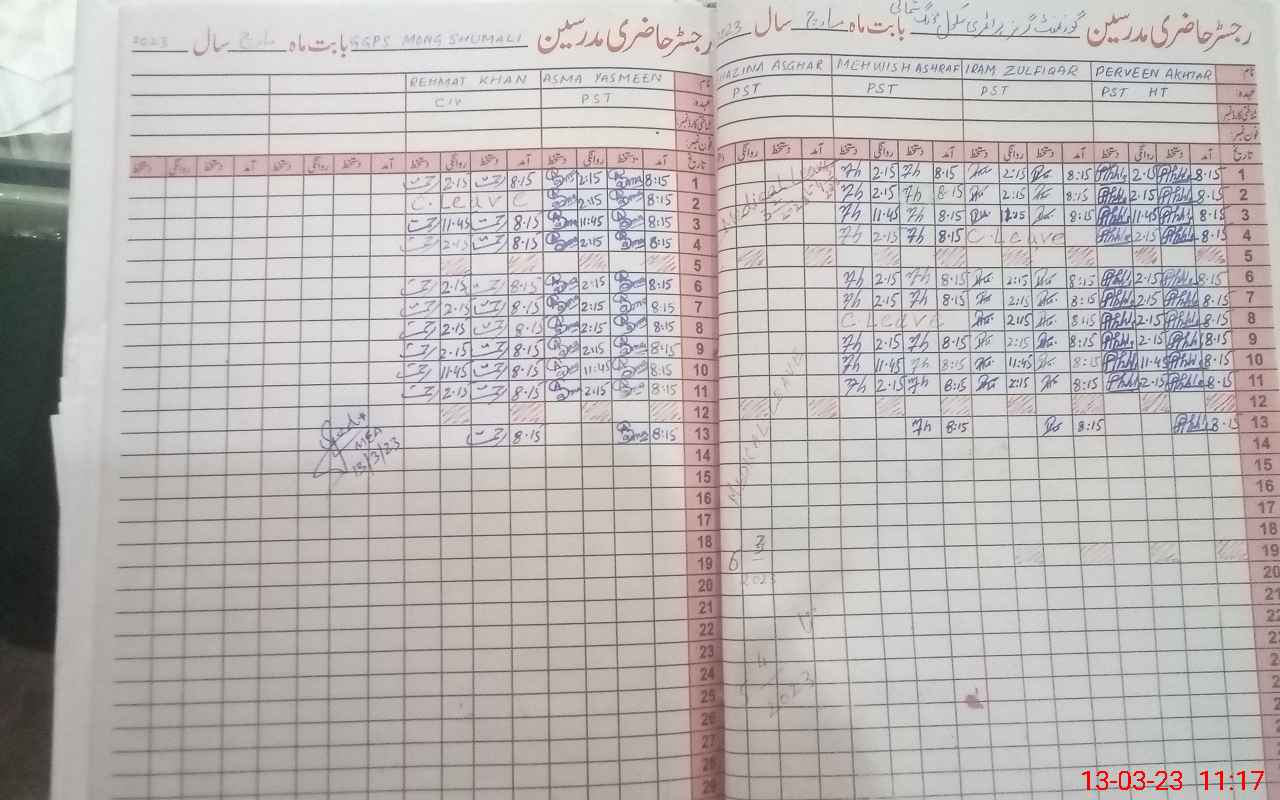 رجسٹر حاضری مدرسین گورنمنٹ گرلز پرائمری سکول مونگ شمالی بابت ماہ مارچ سال 2023
نام PERVEEN AKHTAR IRAM ZULFIQAR MEHWISH ASHRAF SHAZINA ASGHAR
عہدہ PST HT PST PST PST
شناختی کارڈ نمبر
فون نمبر
تاریخ آمد دستخط روانگی دستخط آمد دستخط روانگی دستخط آمد دستخط روانگی دستخط آمد دستخط روانگی
1 8:15 2:15 8:15 2:15 8:15 2:15 Medical Leave
2 8:15 2:15 8:15 2:15 8:15 2:15
3 8:15 11:45 8:15 11:45 8:15 11:45
4 8:15 2:15 C.Leave 8:15 2:15
5
6 8:15 2:15 8:15 2:15 8:15 2:15
7 8:15 2:15 8:15 2:15 8:15 2:15
8 8:15 2:15 8:15 2:15 C.Leave
9 8:15 2:15 8:15 2:15 8:15 2:15
10 8:15 11:45 8:15 11:45 8:15 11:45
11 8:15 2:15 8:15 2:15 8:15 2:15
12
13 8:15 8:15 8:15
14
15
16
17
18
19
20
21
22
23
MEDICAL LEAVE
6 3
2023
4
2023
رجسٹر حاضری مدرسین GGPS MONG SHUMALI بابت ماہ مارچ سال 2023
نام ASMA YASMEEN REHMAT KHAN
عہدہ PST C IV
شناختی کارڈ نمبر
فون نمبر
تاریخ آمد دستخط روانگی دستخط آمد دستخط روانگی دستخط آمد دستخط روانگی دستخط آمد دستخط روانگی دستخط
1 8:15 2:15 8:15 2:15
2 8:15 2:15 C.Leave
3 8:15 11:45 8:15 11:45
4 8:15 2:15 8:15 2:15
5
6 8:15 2:15 8:15 2:15
7 8:15 2:15 8:15 2:15
8 8:15 2:15 8:15 2:15
9 8:15 2:15 8:15 2:15
10 8:15 11:45 8:15 11:45
11 8:15 2:15 8:15 2:15
12
13 8:15 8:15
MEA
13/3/23
14
15
16
17
18
19
20
21
22
23
24
25
26
27
28
13-03-23 11:17